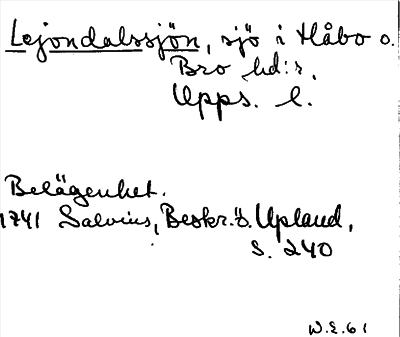 Lejondalssjön, sjö i Håbo o.
Bro hd:r,
Upps. l.
Belägenhet.
1741 Salvius, Beskr. ö. Upland,
s. 240
W.E. 61